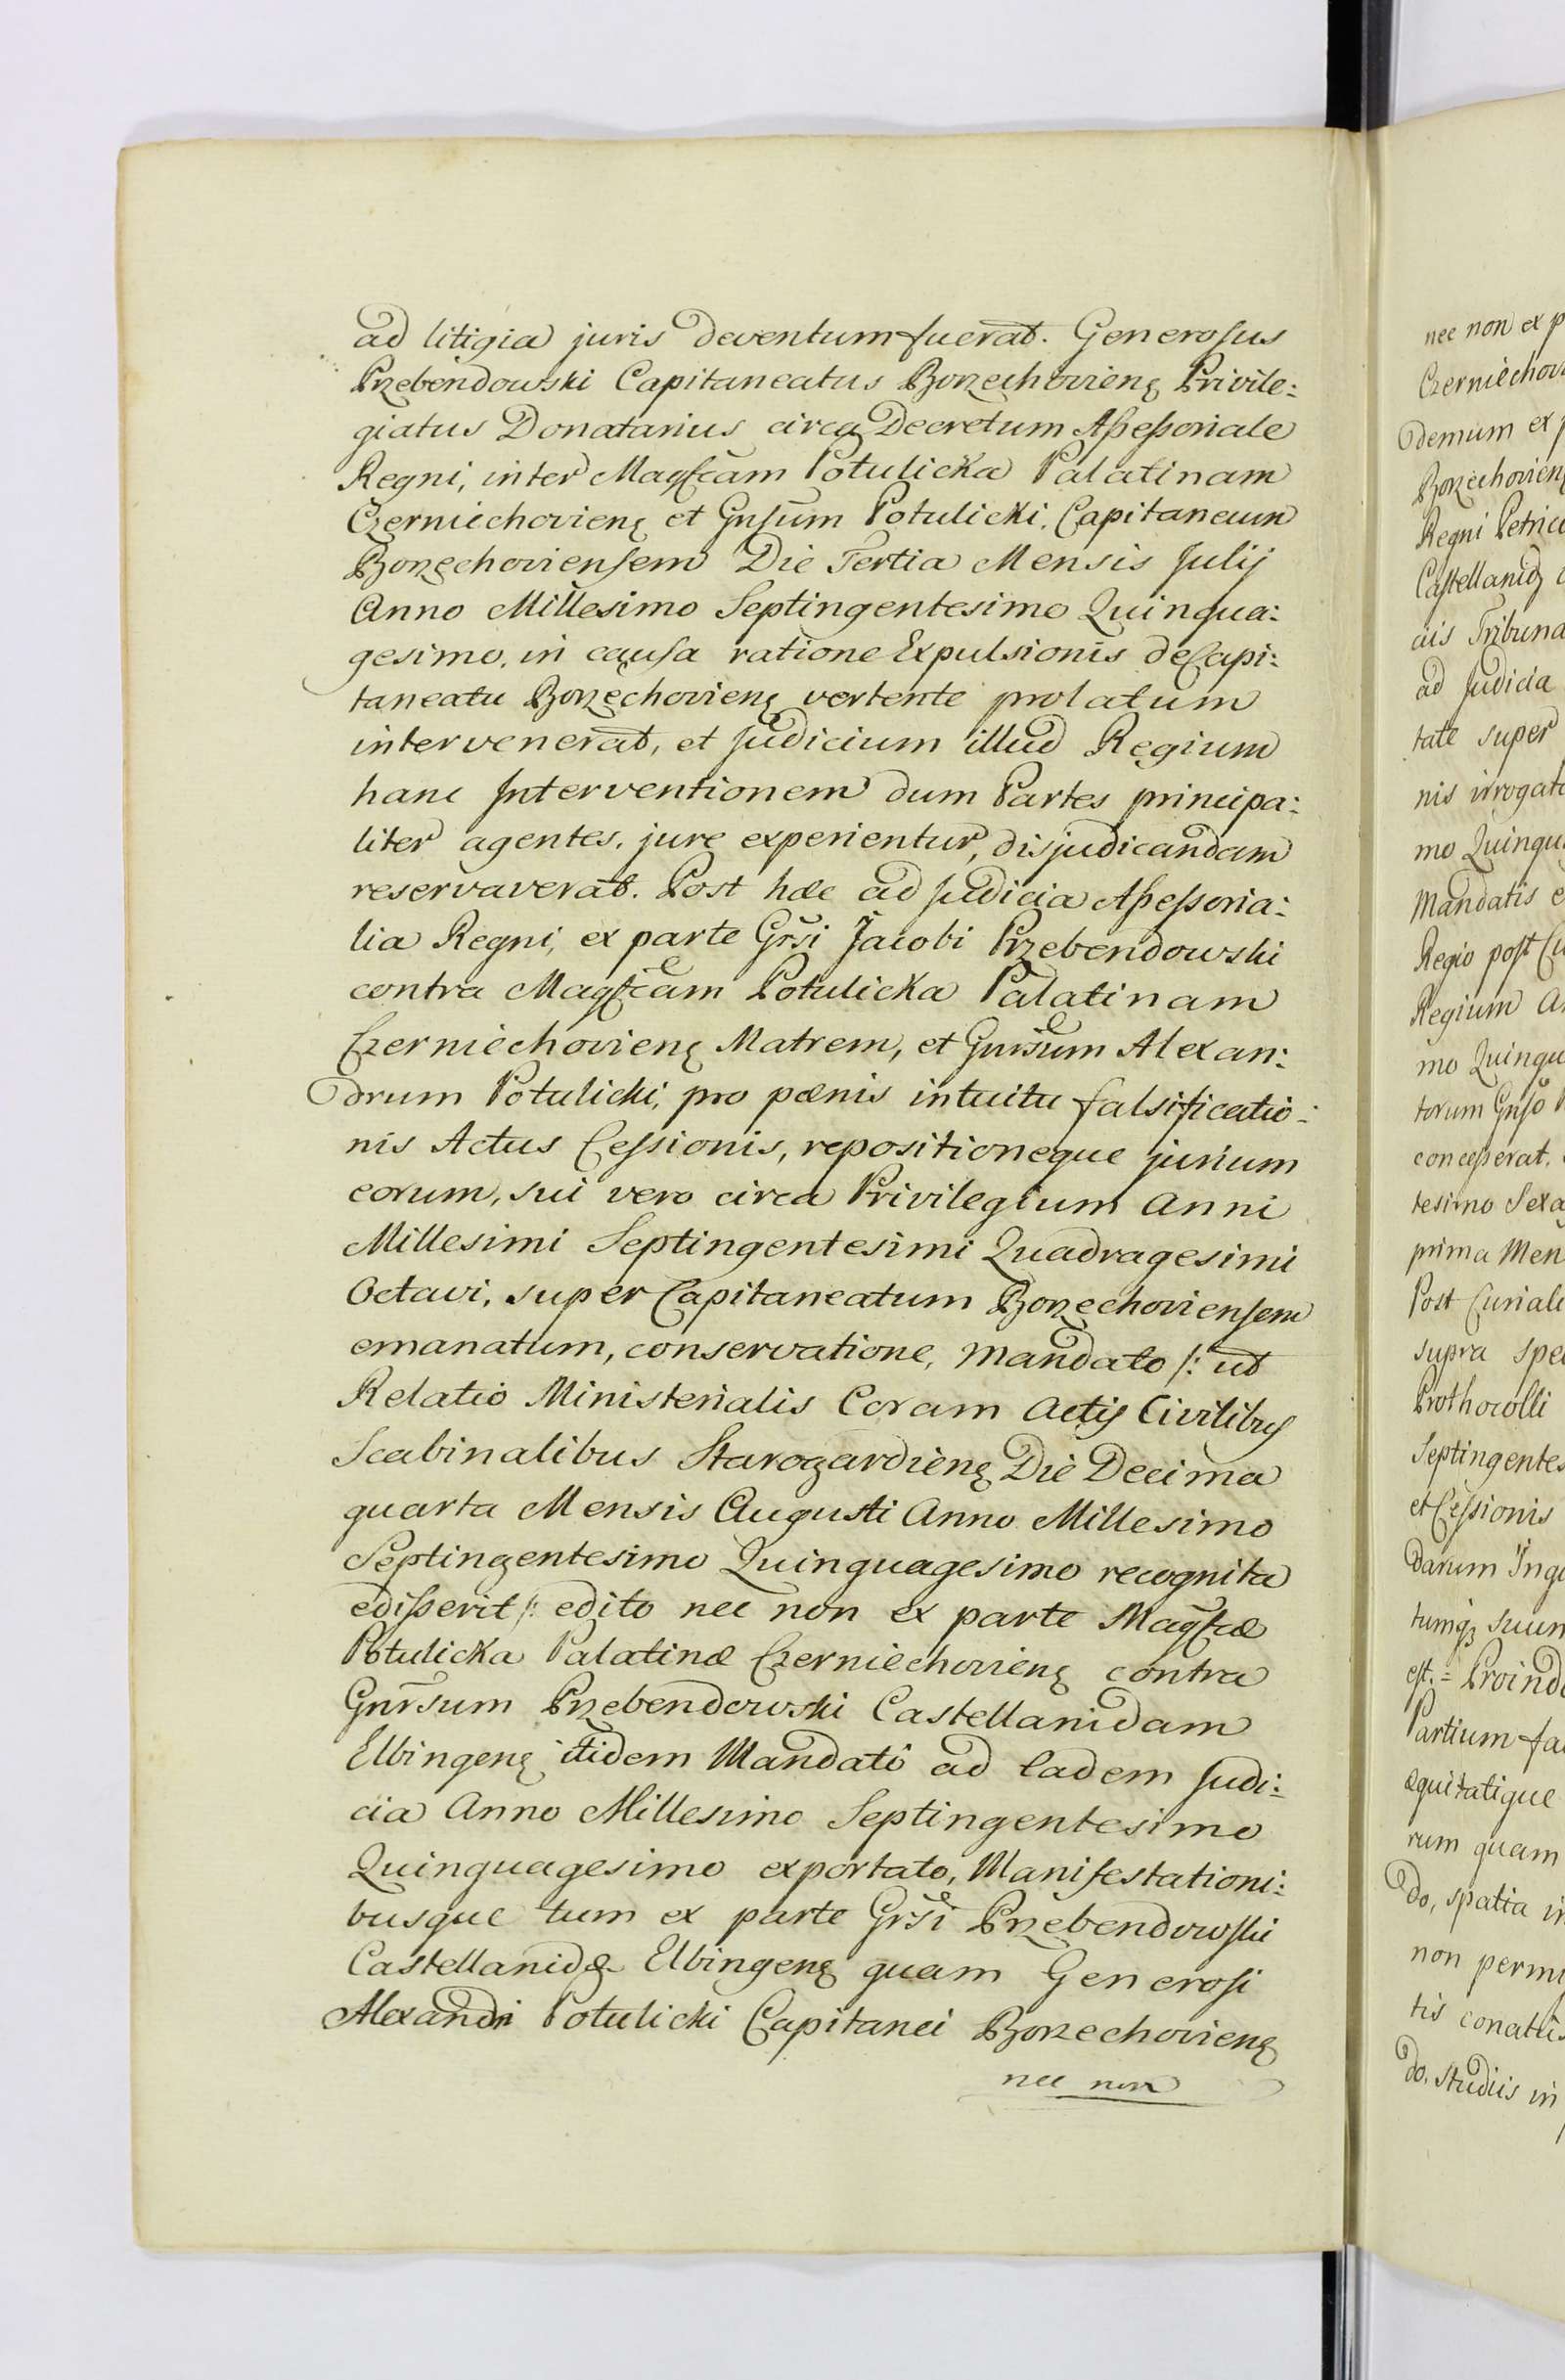 ad litigia juris deventum fuerat. Generosus
Przebendowski Capitaneatus Borzechovienę Privile:
giatus Donatarius circa Decretum Assessoriale
Regni, inter Magfcam Potulicka Palatinam
Czerniechovienę et Gnsum Potulicki, Capitaneum
Borzechoviensem Die Tertia Mensis Julij
Anno Millesimo Septingentesimo Quinqua:
gesimo, in causa ratione Expulsionis de Capi:
taneatu Borzechovienę vertente prolatum
intervenerat, et Judicium illud Regium
hanc Interventionem dum Partes principa:
liter agentes, jure experientur, disjudicandam
reservaverat. Post hæc ad Judicia Assessoria:
lia Regni, ex parte Grsi Jacobi Przebendowski
contra Magfcam Potulicka Palatinam
Czerniechovienę Matrem, et Gnrsum Alexan:
drum Potulicki, pro pœnis intuitu falsificatio:
nis Actus Cessionis, repositioneque jurium
eorum, sui vero circa Privilegium Anni
Millesimi Septingentesimi Quadragesimi
Octavi, super Capitaneatum Borzechoviensem
emanatum, conservatione, Mandato /: ut
Relatio Ministerialis Coram Actis Civilibus
Scabinalibus Starogardienę Die Decima
quarta Mensis Augusti Anno Millesimo
Septingentesimo Quinquagesimo recognita
edisserit /: edito nec non ex parte Magfcæ
Potulicka Palatinæ Czerniechovienę contra
Gnrsum Przebendowski Castellanidam
Elbingenę itidem Mandato ad Eadem Judi:
cia Anno Millesimo Septingentesimo
Quinquagesimo exportato, Manifestationi:
busque tum ex parte Grsi Przebendowski
Castellanidæ Elbingenę quam Generosi
Alexandri Potulicki Capitanei Borzechovienę
nec non
nec non ex p
Czerniechovi
demum ex p
Borzechovienę
Regni Petrico
Castellanidæ
ciis Tribuna
ad Judicia
tate super
nis irrogat
mo Quinqu
Mandatis e
Regio post Cu
Regium A
mo Quinqu
torum Gnso P
concesserat.
tesimo Sexa
prima Men
Post Curiale
supra spe
Prothocolli
Septingentes
et Cessionis
darum Ing
tumqz suum
est. = Proind
Partium fa
æquitatique
rum quam
do, spatia in
non permi
tis conatu
do, studiis in